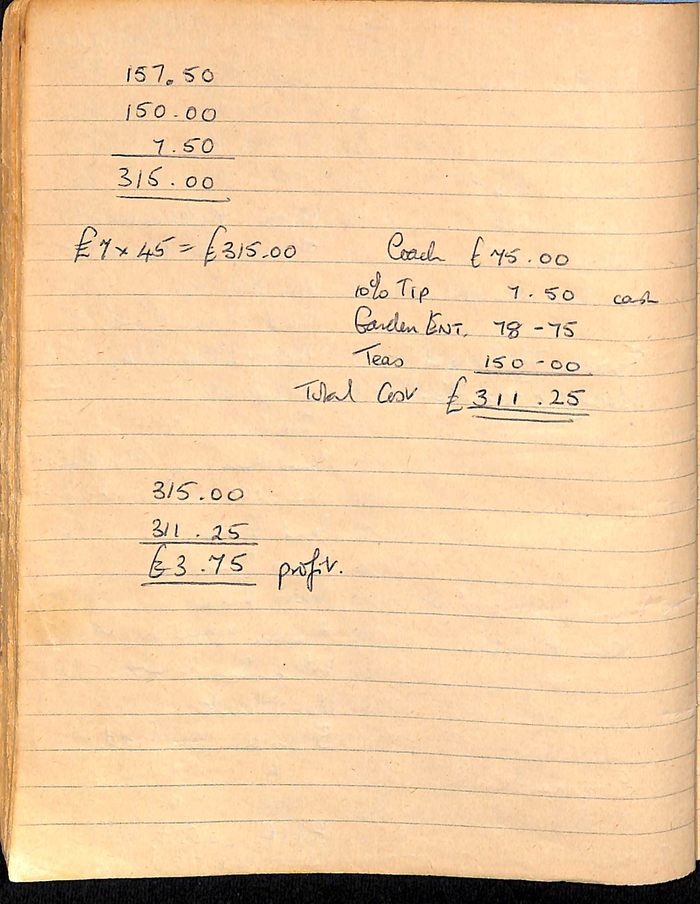 157.50
150.00
7.50
315.00
£7 x 45 = £315.00
Coach £75.00
10% Tip 7.50 cash
Garden ENT. 78-75
Teas 150-00
Total Cost £311.25
315.00
311.25
£3.75 profit.